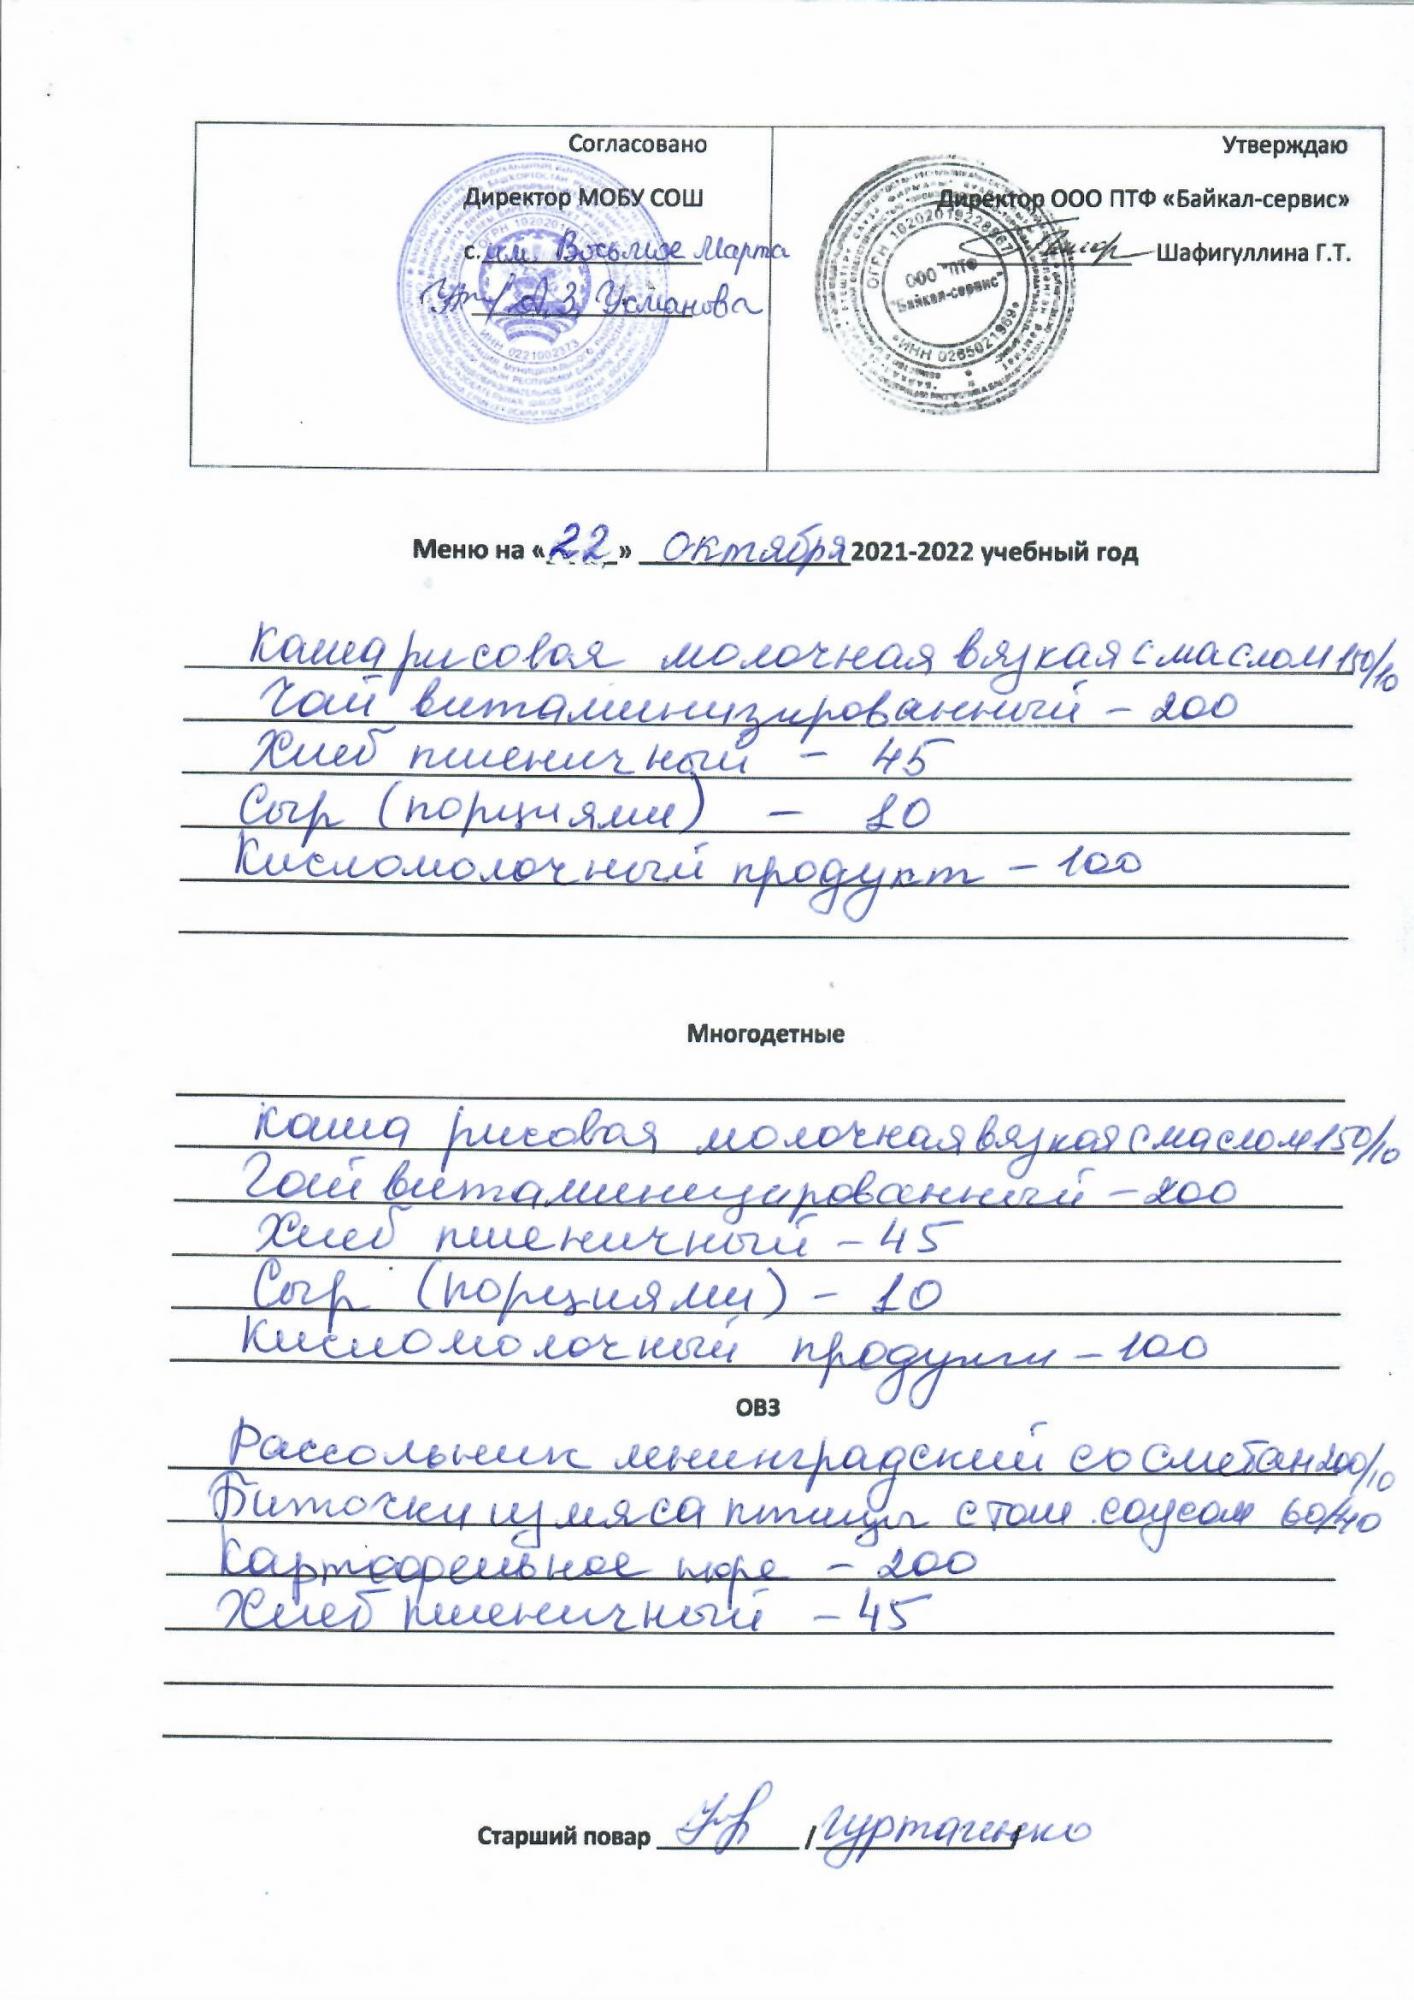 Согласовано
Директор МОБУ СОШ
с. им. Восьмое Марта
А.З. Усманова
ОГРН
ИНН 0221002373
Утверждаю
Директор ООО ПТФ «Байкал-сервис»
Шафигуллина Г.Т.
ООО "ПТФ
"Байкал-сервис"
ИНН 0265021969
Меню на «22» октября 2021-2022 учебный год
Каша рисовая молочная вязкая с маслом 150/10
Чай витаминизированный – 200
Хлеб пшеничный – 45
Сыр (порциями) – 10
Кисломолочный продукт – 100
Многодетные
Каша рисовая молочная вязкая с маслом 150/10
Чай витаминицированный – 200
Хлеб пшеничный – 45
Сыр (порциями) – 10
Кисломолочный – 100
ОВЗ
Рассольник ленинградский со сметан 200/10
Биточки из мяса птицы с том. соусом 60/40
Картофельное пюре – 200
Хлеб пшеничный – 45
Старший повар / /